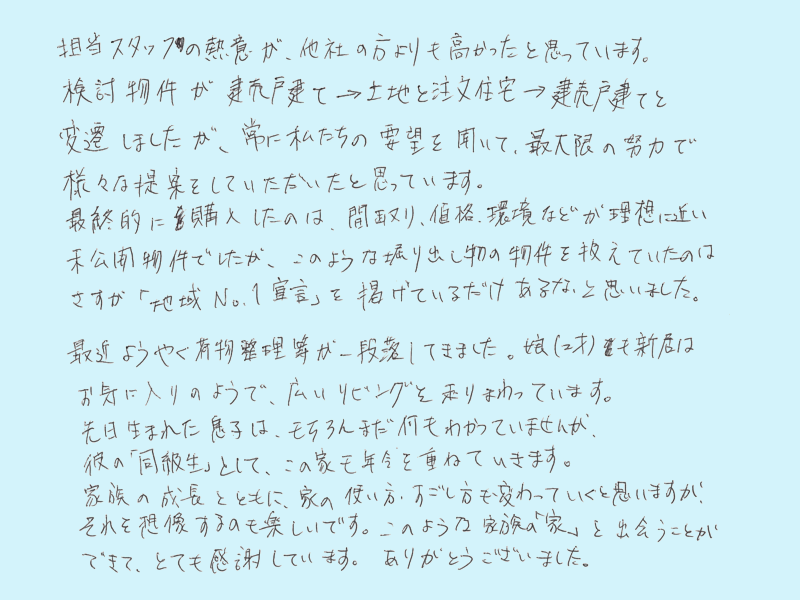 担当スタッフの熱意が、他社の方よりも高かったと思っています。
検討物件が建売戸建て→土地と注文住宅→建売戸建てと
変遷しましたが、常に私たちの要望を聞いて、最大限の努力で
様々な提案をしていただいたと思っています。
最終的に購入したのは、間取り、価格、環境などが理想に近い
未公開物件でしたが、このような掘り出し物の物件を教えていたのは
さすが「地域No.1宣言」を掲げているだけあるな、と思いました。
最近ようやく荷物整理等が一段落してきました。娘(2才)も新居は
お気に入りのようで、広いリビングを走りまわっています。
先日生まれた息子は、もちろんまだ何もわかっていませんが、
彼の「同級生」として、この家も年令を重ねていきます。
家族の成長とともに、家の使い方、すごし方も変わっていくと思いますが、
それを想像するのも楽しいです。このような家族の「家」と出会うことが
できて、とても感謝しています。ありがとうございました。